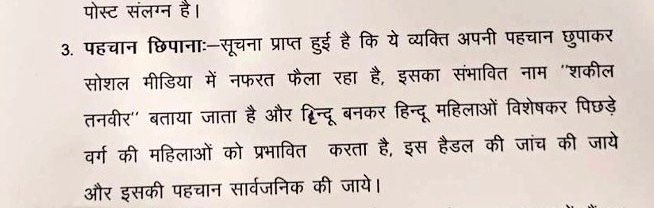 पोस्ट संलग्न है।
3. पहचान छिपानाः–सूचना प्राप्त हुई है कि ये व्यक्ति अपनी पहचान छुपाकर
सोशल मीडिया में नफरत फैला रहा है, इसका संभावित नाम "शकील
तनवीर" बताया जाता है और हिन्दू बनकर हिन्दू महिलाओं विशेषकर पिछड़े
वर्ग की महिलाओं को प्रभावित करता है, इस हैडल की जांच की जाये
और इसकी पहचान सार्वजनिक की जाये।